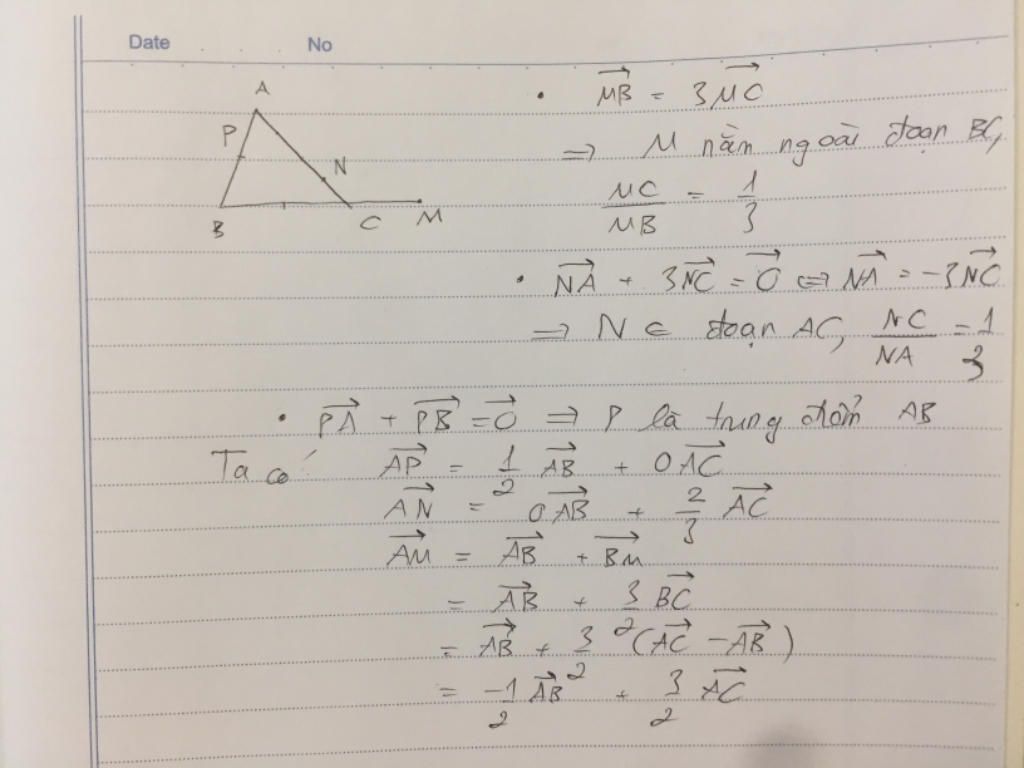 Date No
A
P
N
B C M
• $\overrightarrow{MB} = 3\overrightarrow{MC}$
⇒ M nằm ngoài đoạn BC,
$\frac{MC}{MB} = \frac{1}{3}$
• $\overrightarrow{NA} + 3\overrightarrow{NC} = \overrightarrow{O} ⇔ \overrightarrow{NA} = -3\overrightarrow{NC}$
⇒ N ∈ đoạn AC, $\frac{NC}{NA} = \frac{1}{3}$
• $\overrightarrow{PA} + \overrightarrow{PB} = \overrightarrow{O}$ ⇒ P là trung điểm AB
Ta có $\overrightarrow{AP} = \frac{1}{2}\overrightarrow{AB} + 0\overrightarrow{AC}$
$\overrightarrow{AN} = 0\overrightarrow{AB} + \frac{2}{3}\overrightarrow{AC}$
$\overrightarrow{AM} = \overrightarrow{AB} + \overrightarrow{BM}$
$= \overrightarrow{AB} + \frac{3}{2}\overrightarrow{BC}$
$= \overrightarrow{AB} + \frac{3}{2}(\overrightarrow{AC} - \overrightarrow{AB})$
$= \frac{-1}{2}\overrightarrow{AB} + \frac{3}{2}\overrightarrow{AC}$